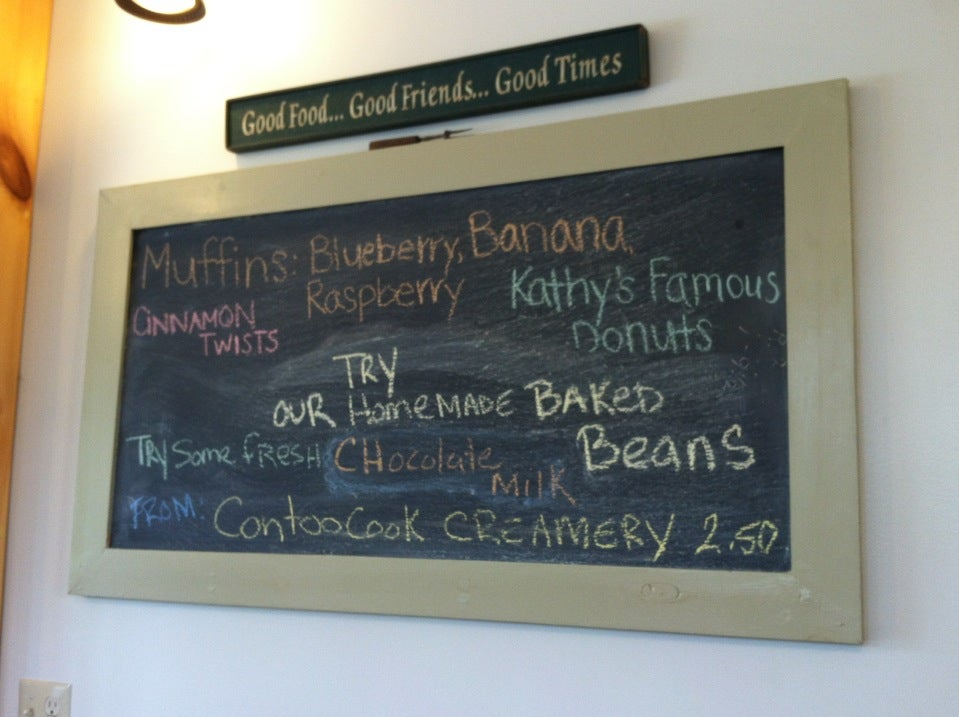 Good Food... Good Friends... Good Times
Muffins: Blueberry, Banana,
Raspberry
CINNAMON
TWISTS
Kathy's Famous
Donuts
TRY
OUR HomeMADE BAKED
Beans
TRY Some FRESH CHocolate
MILK
FROM: ContooCook CREAMERY 2.50